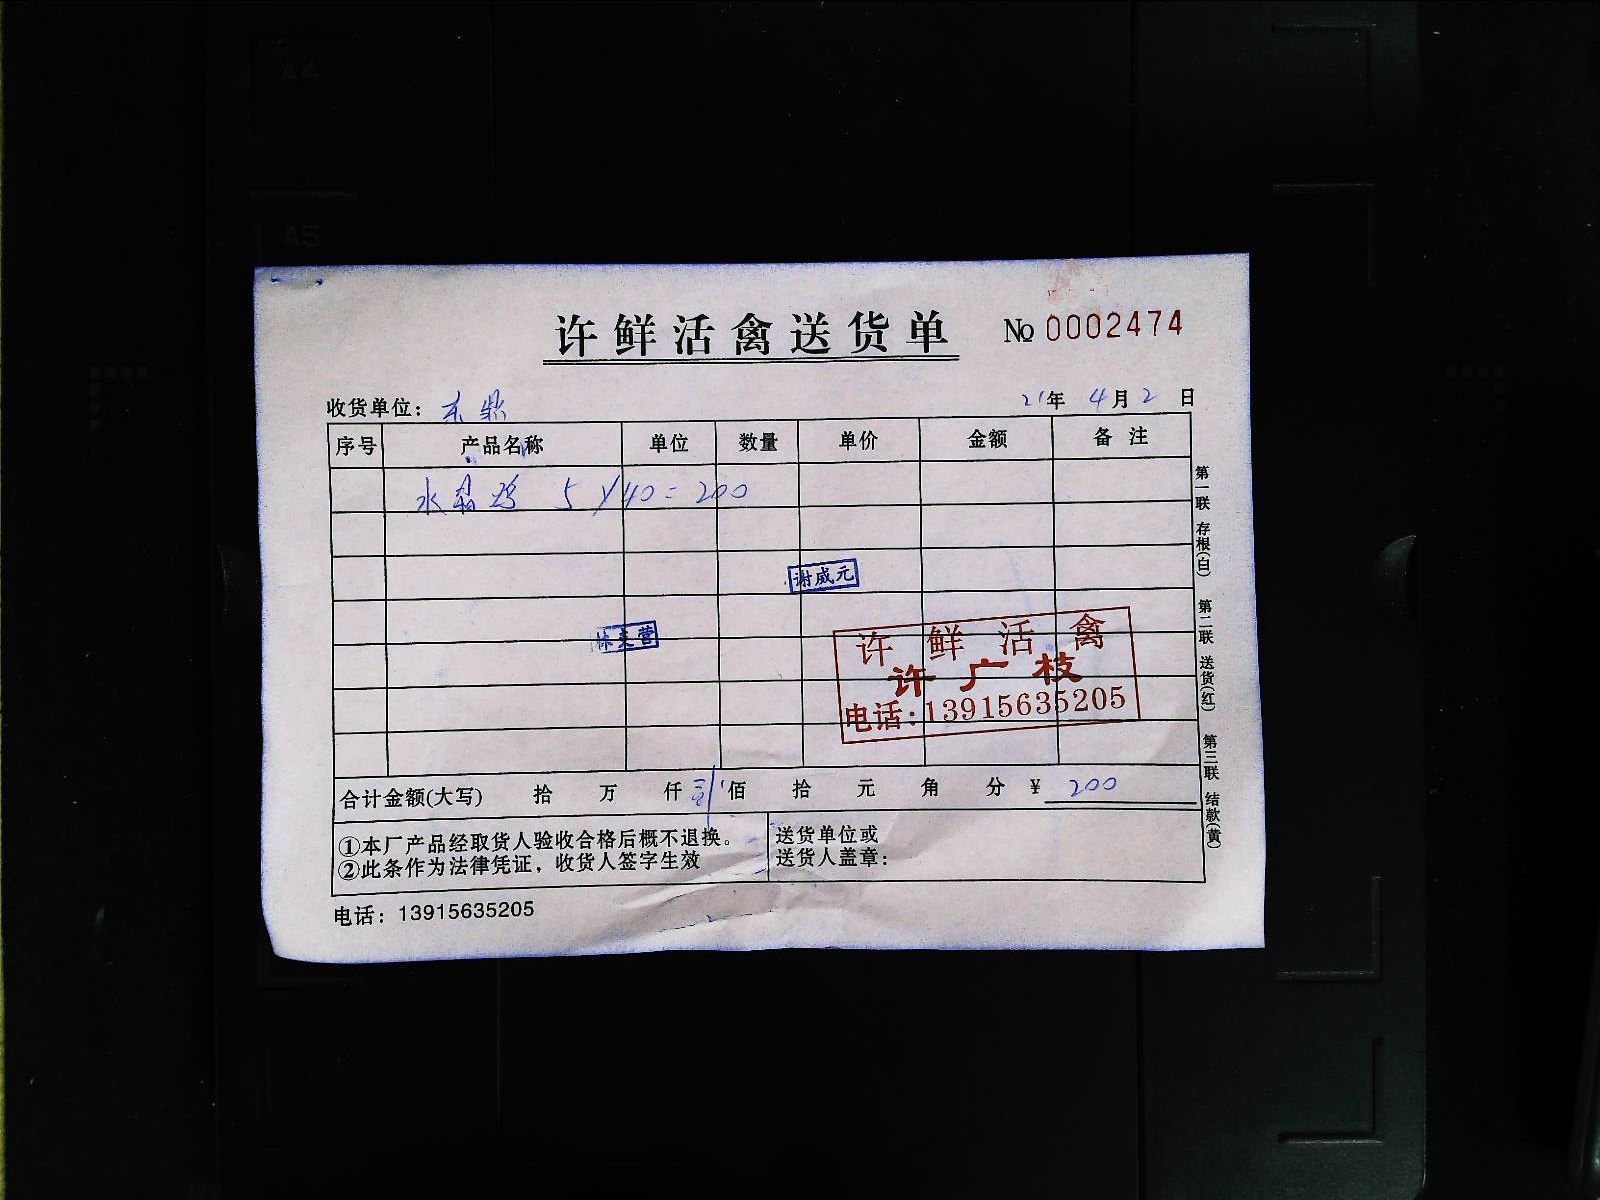 A4
A5
许鲜活禽送货单 № 0002474
收货单位：东鼎 21年 4月 2日
序号 产品名称 单位 数量 单价 金额 备注
水晶鸡 5×40=200
谢威元
许鲜活禽
许广枝
电话：13915635205
合计金额(大写) 拾 万 仟 佰 拾 元 角 分 ¥ 200
①本厂产品经取货人验收合格后概不退换。
②此条作为法律凭证，收货人签字生效
送货单位或
送货人盖章：
电话：13915635205
第一联 存根(白) 第二联 送货(红) 第三联 结款(黄)